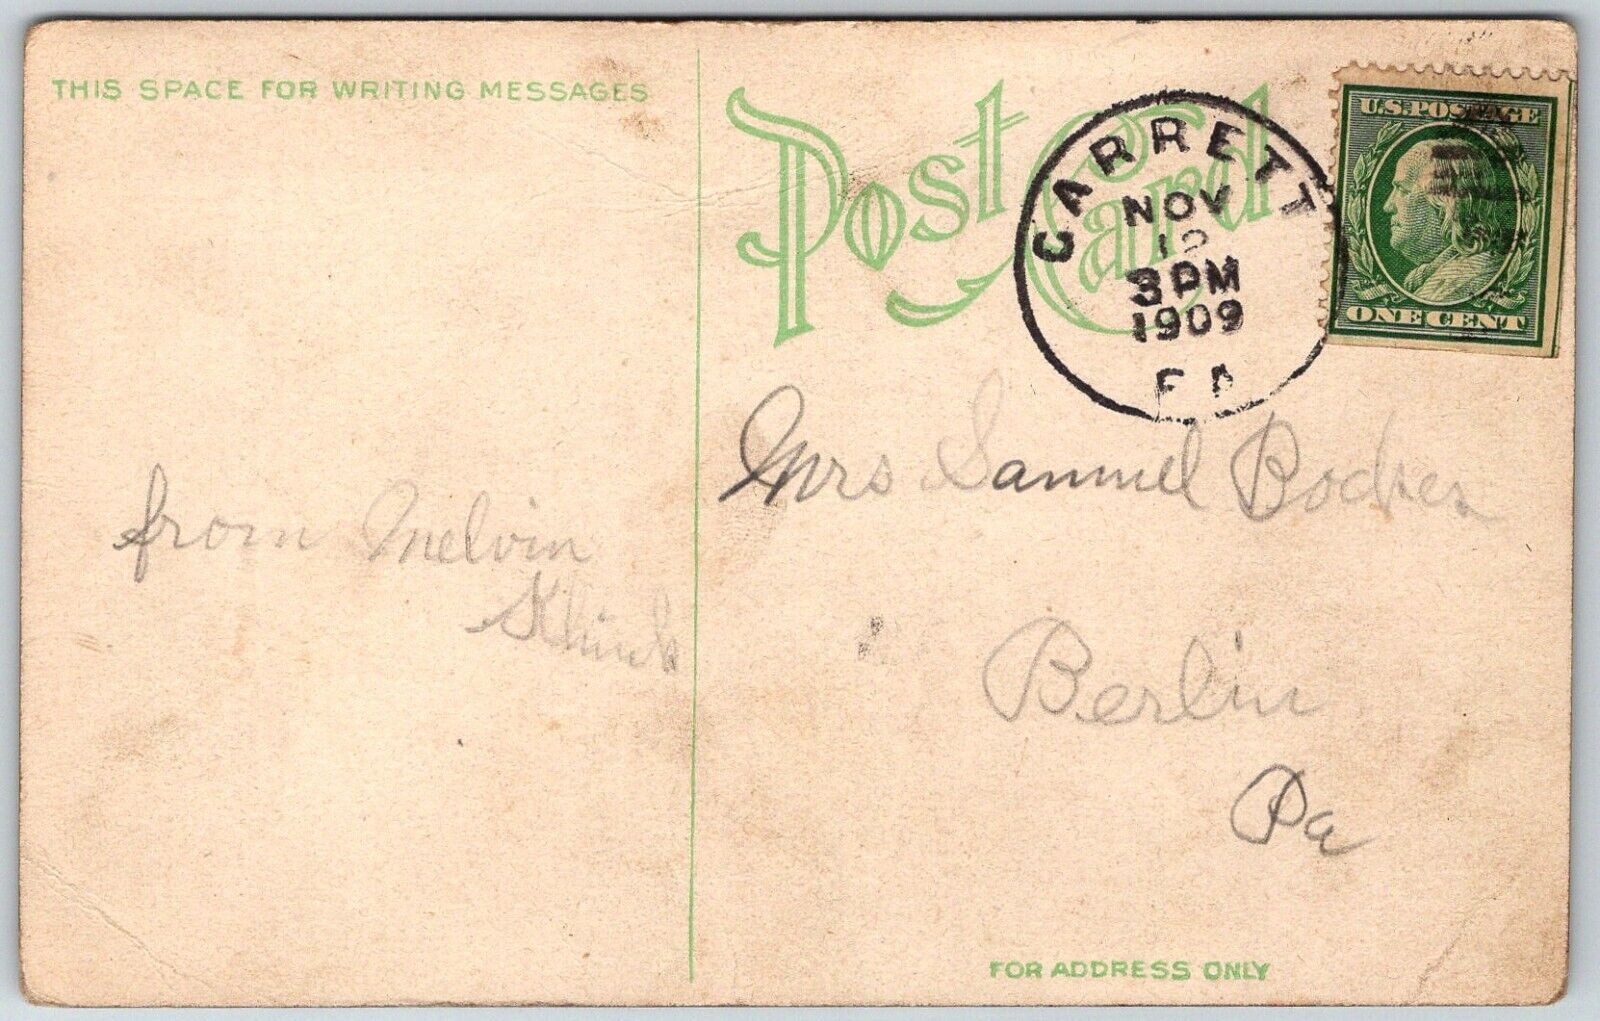 THIS SPACE FOR WRITING MESSAGES
Post Card
GARRETT
NOV
12
3 PM
1909
PA
U.S. POSTAGE
ONE CENT
Mrs Samuel
from Melvin
Berlin
Pa
FOR ADDRESS ONLY